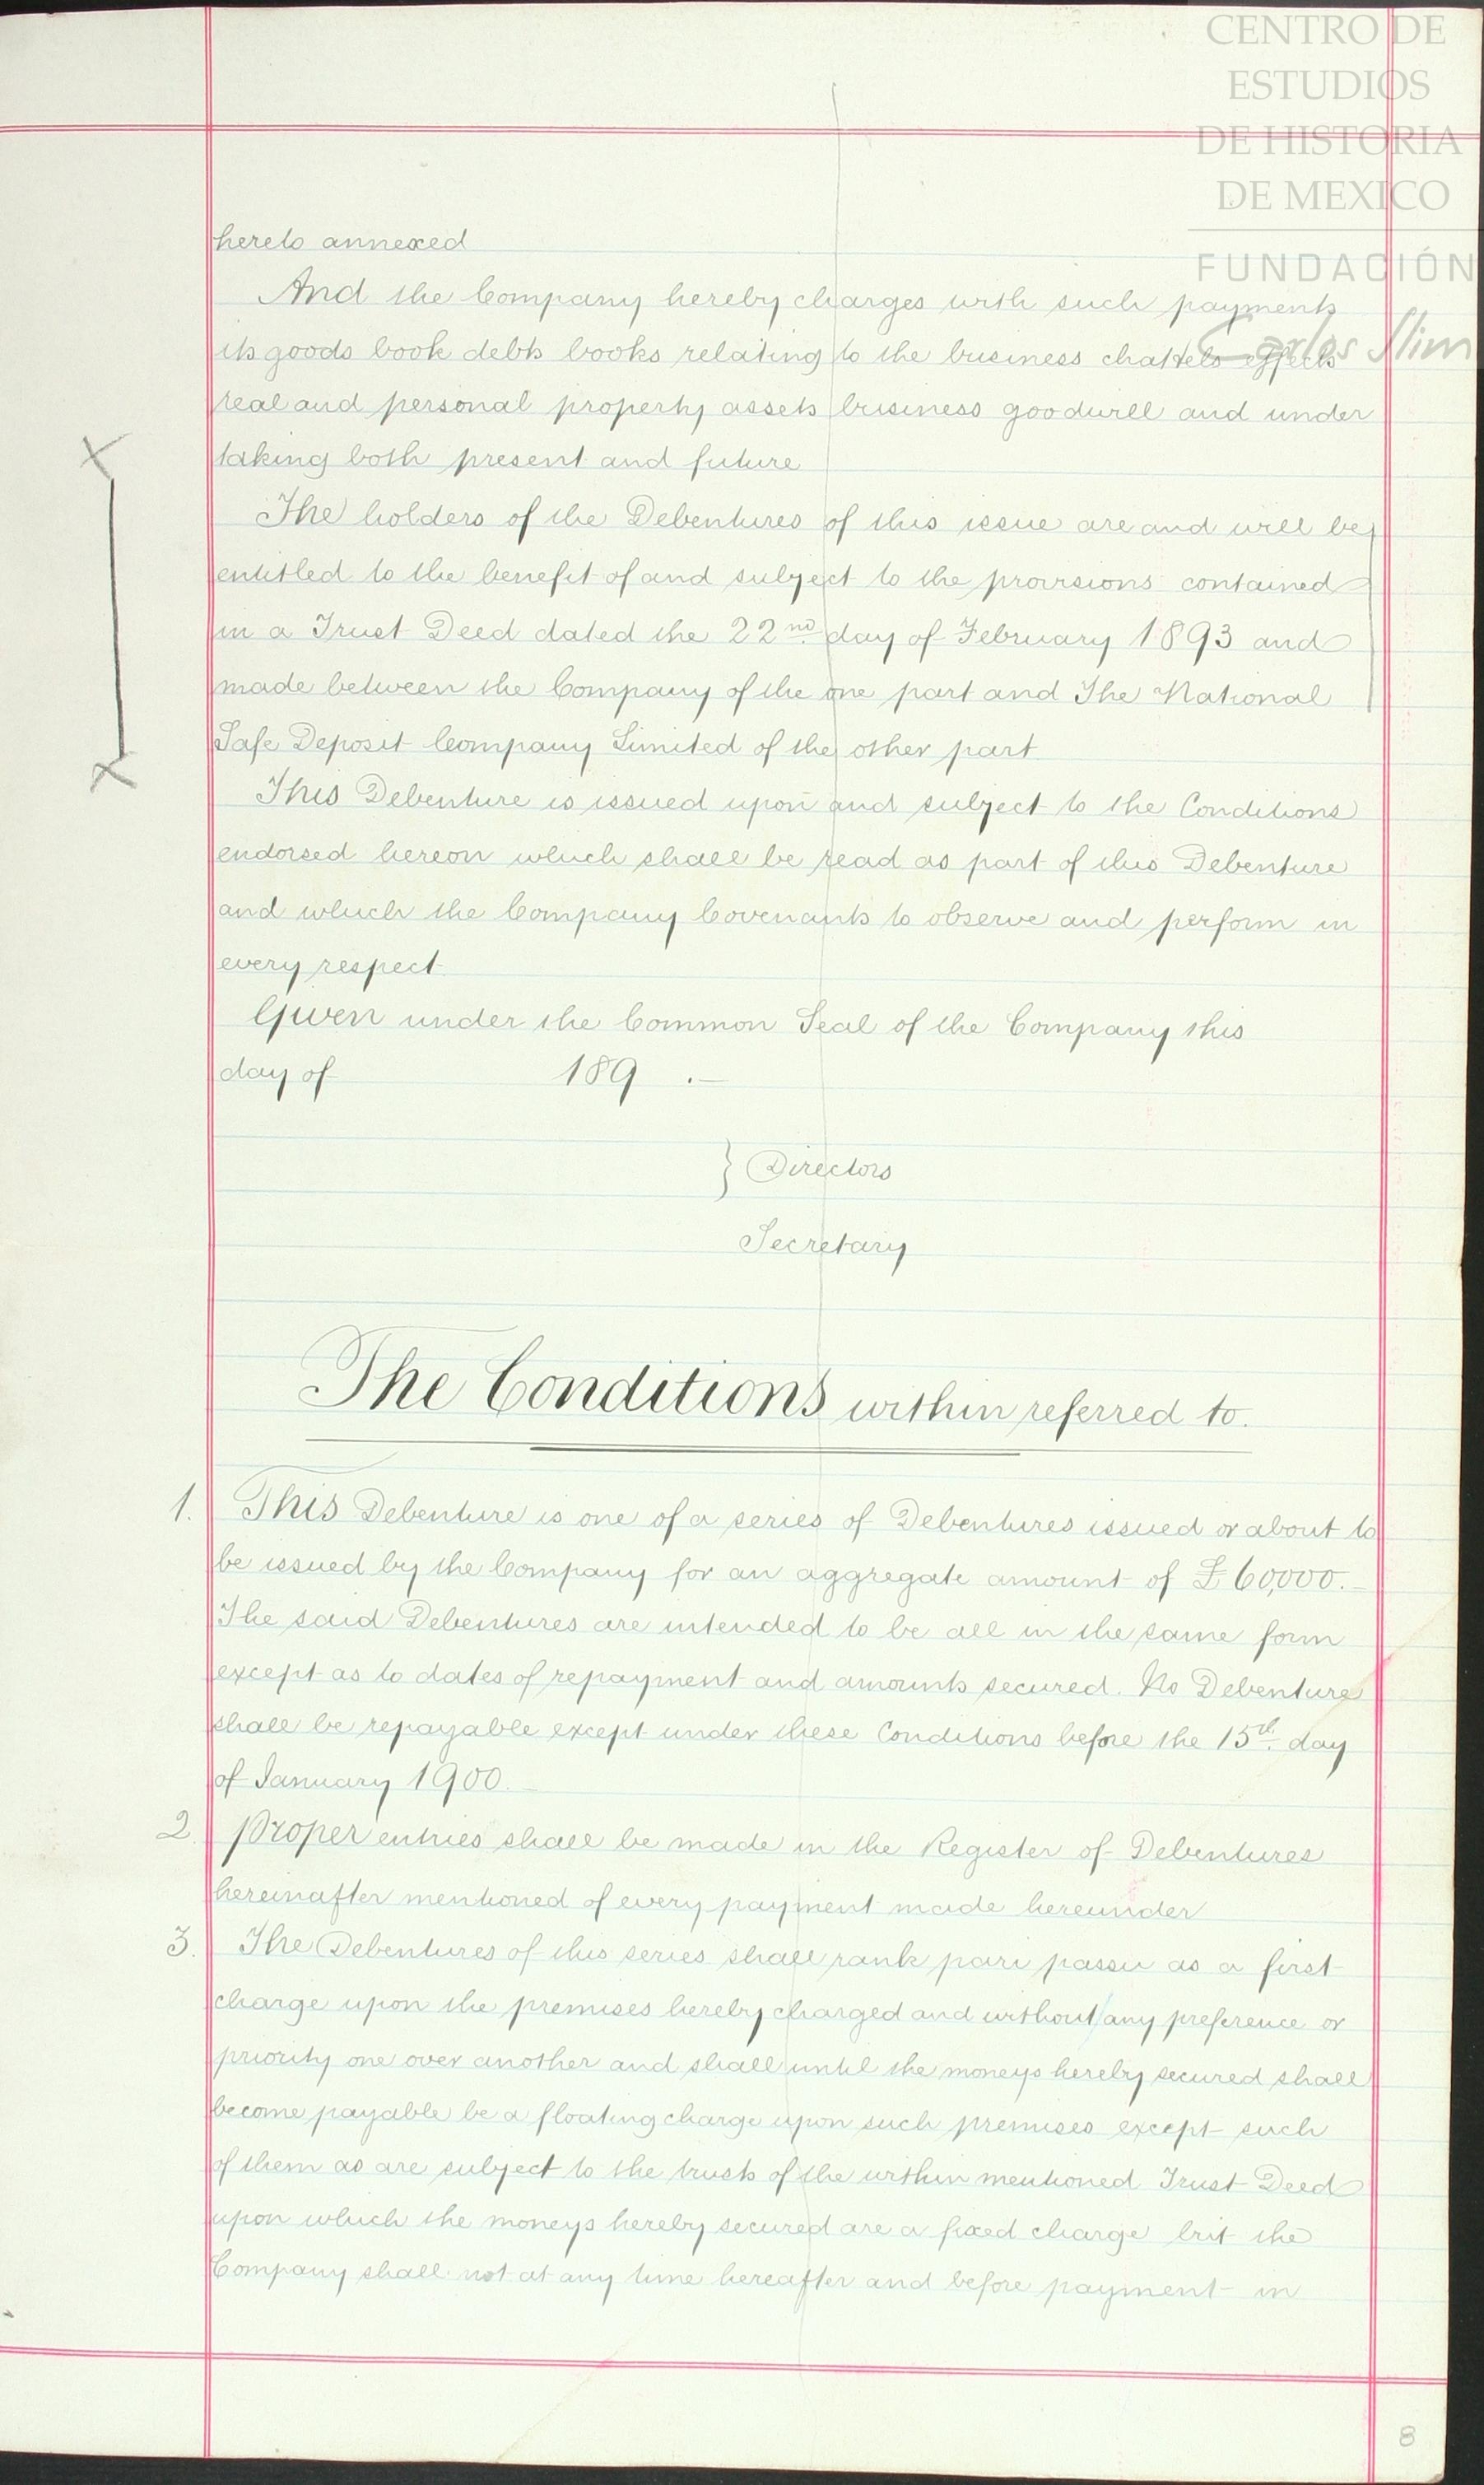 CENTRO DE
ESTUDIOS
DE HISTORIA
DE MEXICO
FUNDACIÓN
Carlos Slim
hereto annexed
And the Company hereby charges with such payments
its goods book debts books relating to the business chattels effects
real and personal property assets business goodwill and under
taking both present and future
The holders of the Debentures of this issue are and will be
entitled to the benefit of and subject to the provisions contained
in a Trust Deed dated the 22nd day of February 1893 and
made between the Company of the one part and The National
Safe Deposit Company Limited of the other part
This Debenture is issued upon and subject to the Conditions
endorsed hereon which shall be read as part of this Debenture
and which the Company Covenants to observe and perform in
every respect
Given under the Common Seal of the Company this
day of 189 .—
} Directors
Secretary
The Conditions within referred to.
1. This Debenture is one of a series of Debentures issued or about to
be issued by the Company for an aggregate amount of £60,000.—
The said Debentures are intended to be all in the same form
except as to dates of repayment and amounts secured. No Debenture
shall be repayable except under these Conditions before the 15th. day
of January 1900.—
2. Proper entries shall be made in the Register of Debentures
hereinafter mentioned of every payment made hereunder
3. The Debentures of this series shall rank pari passu as a first
charge upon the premises hereby charged and without any preference or
priority one over another and shall until the moneys hereby secured shall
become payable be a floating charge upon such premises except such
of them as are subject to the trusts of the within mentioned Trust Deed
upon which the moneys hereby secured are a fixed charge but the
Company shall not at any time hereafter and before payment in
8